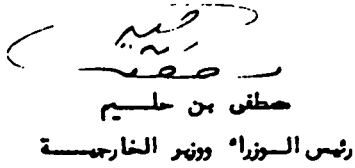 مصطفى بن حليم
رئيس الوزراء ووزير الخارجية